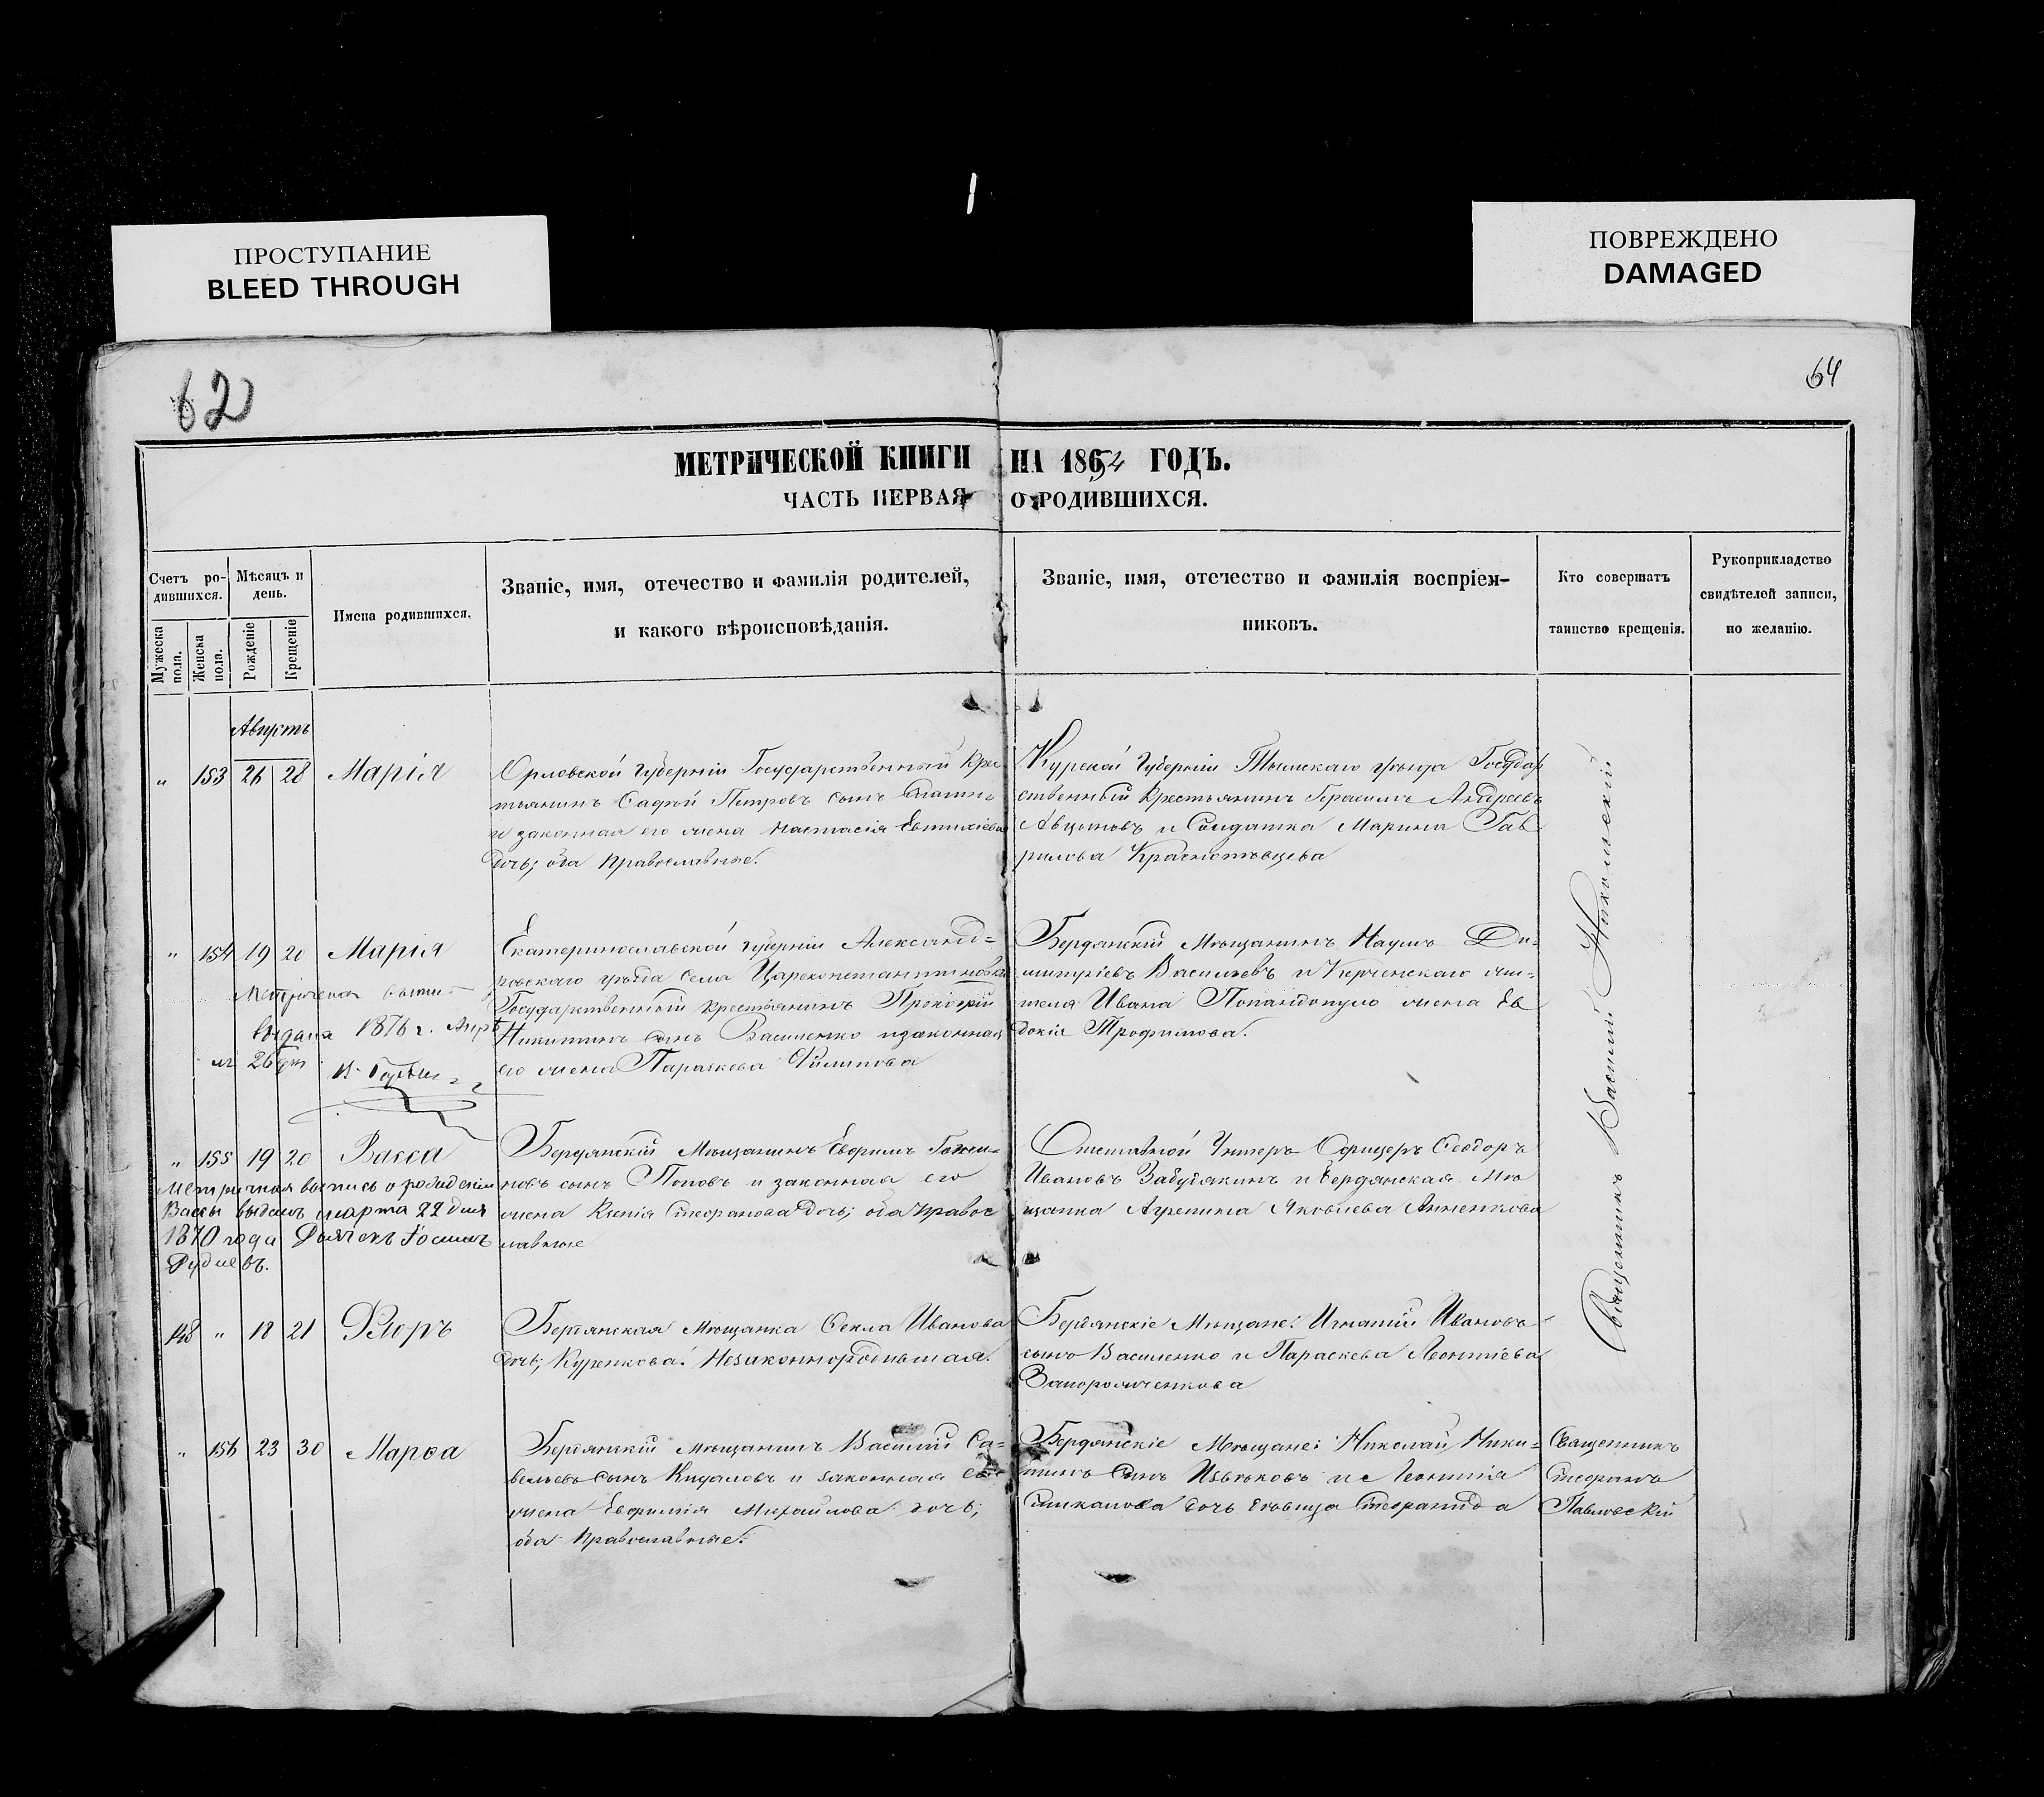 ПРОСТУПАНИЕ
BLEED THROUGH
ПОВРЕЖДЕНО
DAMAGED
62
64
МЕТРИЧЕСКОЙ КНИГИ НА 1864 ГОДЪ.
ЧАСТЬ ПЕРВАЯ О РОДИВШИХСЯ.
Счетъ ро-
дившихся.
Мужеска пола.
Женска пола.
Мѣсяцъ и
день.
Рожденіе
Крещеніе
Имена родившихся.
Званіе, имя, отечество и фамилія родителей,
и какого вѣроисповѣданія.
Званіе, имя, отечество и фамилія воспріем-
никовъ.
Кто совершатъ
таинство крещенія.
Рукоприкладство
свидѣтелей записи,
по желанію.
Августъ
" 153 26 28 Марія
Орловской губерніи Государственный Крес
тьянинъ Петровъ сынъ
и законная его жена Настасія Евтихіева
дочь; оба Православные.
Курской Губерніи уѣзда Государ
ственный Крестьянинъ Герасимъ Андреевъ
и Солдатка Марина Гав
рилова
" 154 19 20 Марія
Метрическая
выдана 1876 г. Апрѣ
ля 26 дня
Екатеринославской губерніи Александ=
ровскаго уѣзда Села Цареконстантиновки
Государственный крестьянинъ Прокофій
Никитинъ сынъ Василенко и законная
его жена Параскева Филипова
Бердянскій Мѣщанинъ Наумъ Ди-
митріевъ Васильевъ и Керченскаго жи-
теля Ивана Попандопуло жена Ев
докія Трофимова.
" 155 19 20 Васса
Метричная выпись о рожденіи
Вассы выдана марта 22 дня
1870 года Дьячекъ
Рудневъ.
Бердянскій Мѣщанинъ Ефимъ
новъ сынъ Поповъ и законная его
жена Ксенія Стефанова дочь; оба Правос
лавные
Отставной Унтеръ-Офицеръ Ѳеодоръ
Ивановъ и Бердянская Мѣ
щанка Агрепина Яковлева Анненкова
148 " 18 21 Флоръ
Бердянская Мѣщанка Ѳекла Иванова
дочь; Куренкова. Незаконнородившая.
Бердянскіе Мѣщане: Игнатій Ивановъ
сынъ Василенко и Параскева Леонтіева
Запорожченкова
Священникъ Василій Никольскій
" 156 23 30 Марѳа
Бердянскій мѣщанинъ Василій Са=
вельевъ сынъ и законная его
жена Евфимія Михайлова дочь;
оба Православные.
Бердянскіе Мѣщане: Николай Ники=
тинъ сынъ и
дочь
Священникъ
Стефанъ
Павловскій